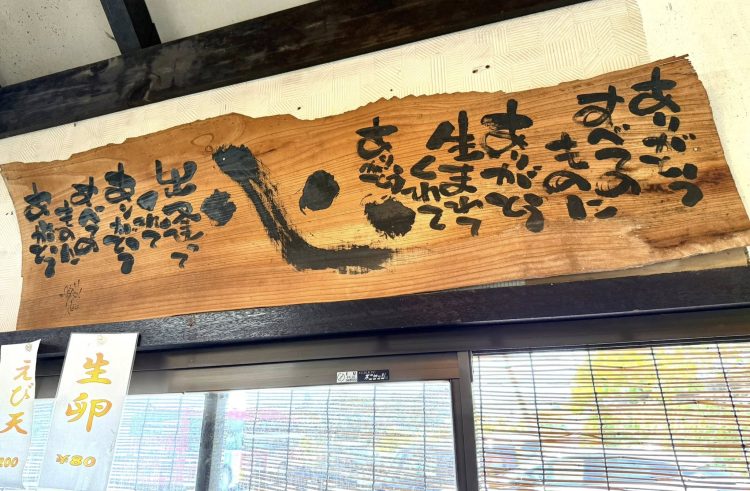 ありがとう
すべての
ものに
ありがとう
生まれて
くれて
ありがとう
心
出逢って
くれて
ありがとう
すべての
ものに
ありがとう
生卵
¥80
えび天
200